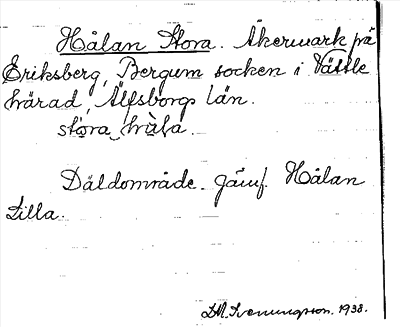 Hålan Stora. Åkermark på
Eriksberg, Bergum socken i Vättle
härad, Älfsborgs län.
stora håla.
Däldområde. Jämf. Hålan
Lilla.
1938.